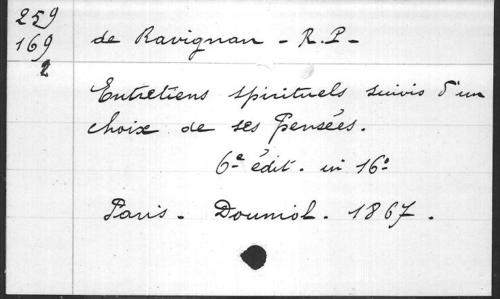 259
169
2
de Ravignan - R.P. -
Entretiens spirituels suivis d'un
choix de ses Pensées.
6e édit. in 16o
Paris - Douniol - 1867.